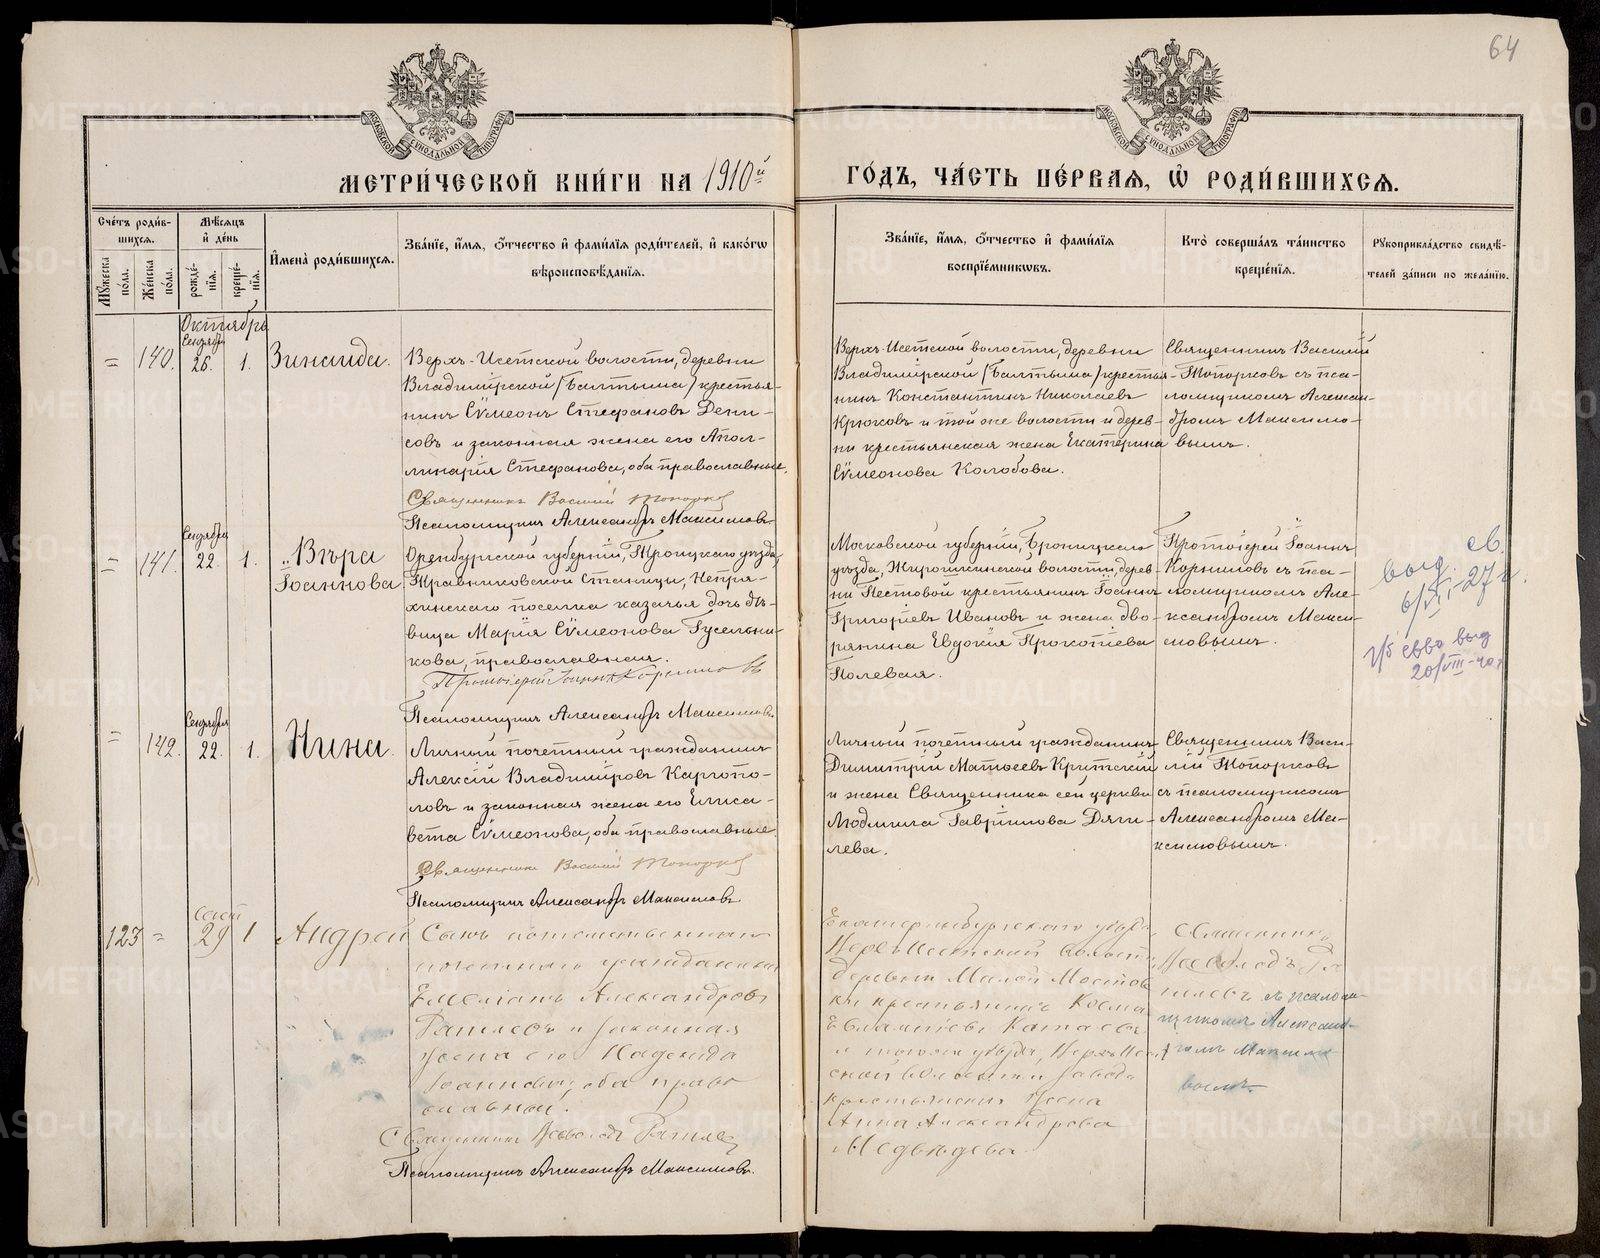 64
МЕТРИ́ЧЕСКОЙ КНИ́ГИ НА 1910й
ГО́ДЪ, ЧА́СТЬ ПЕ́РВАѦ, Ѡ҆ РОДИ́ВШИХСѦ.
Сче́тъ роди́в-
шихсѧ.
Мꙋ́жеска по́ла.
Же́нска по́ла.
Мѣ́сѧцъ
и҆ де́нь
рожде́-
нїѧ.
креще́-
нїѧ.
И҆мена̀ роди́вшихсѧ.
Зва́нїе, и҆́мѧ, ѻ҆́тчество и҆ фами́лїѧ роди́телей, и҆ како́гѡ
вѣроисповѣ́данїѧ.
Зва́нїе, и҆́мѧ, ѻ҆́тчество и҆ фами́лїѧ
воспрїе́мникѡвъ.
Кто̀ соверша́лъ та́инство
креще́нїѧ.
Рꙋкоприкла́дство свидѣ́-
телей за́писи по жела́нїю.
Октябрь
= 140. Сентября 26. 1. Зинаида.
Верхъ-Исетской волости, деревни
Владимірской (Балтыма) крестья-
нинъ Сѵмеонъ Стефановъ Дени-
совъ и законная жена его Апол-
линарія Стефанова, оба православные.
Священникъ Василій Топорков
Псаломщикъ Александръ Максимовъ.
Верхъ-Исетской волости, деревни
Владимірской (Балтыма) крестья-
нинъ Константинъ Николаевъ
Крюковъ и той же волости и дерев-
ни крестьянская жена Екатерина
Сѵмеонова Колобова.
Священникъ Василій
Топорковъ съ пса-
ломщикомъ Алексан-
дромъ Максимо-
вымъ.
= 141. Сентября 22. 1. Вѣра
Іоаннова
Оренбургской губерніи, Троицкаго уѣзда,
Травниковской Станицы, Непря-
хинскаго поселка казачья дочь дѣ-
вица Марія Сѵмеонова Гусельни-
кова, православная.
Протоіерей Іоаннъ Корниловъ
Псаломщикъ Александръ Максимовъ.
Московской губерніи, Бронницкаго
уѣзда, Жирошкинской волости, дерев-
ни Пестовой крестьянинъ Іоаннъ
Григоріевъ Ивановъ и жена дво-
рянина Евдокія Прокопіева
Полевая.
Протоіерей Іоаннъ
Корниловъ съ пса-
ломщикомъ Але-
ксандромъ Макси-
мовымъ.
св.
выд.
20/VIII-40 г
= 142. Сентября 22. 1. Нина.
Личный почетный гражданинъ
Алексій Владиміровъ Каргопо-
ловъ и законная жена его Елиса-
вета Сѵмеонова, оба православные
Священникъ Василій Топорков
Псаломщикъ Александръ Максимовъ.
Личный почетный гражданинъ
Димитрій Матѳеевъ Критскій
и жена Священника сей церкви
Людмила Гавріилова Дяги-
лева.
Священникъ Васи-
лій Топорковъ
съ псаломщикомъ
Александромъ Ма-
ксимовымъ.
123 = Сент 29 1 Андрей
Сынъ потомственнаго
почетнаго гражданина
Емеліанъ Александровъ
и законная
жена его Надежда
Іоаннова, оба право
славные.
Священникъ Всеволодъ
Псаломщикъ Александръ Максимовъ.
Екатеринбургскаго уѣзда
Верхъ-Исетской волости
деревни Малой Мостов
ки крестьянинъ Косма
Евлампіевъ Катаевъ
и того же уѣзда, Верхъ-Исет
ской волости и завода
крестьянская жена
Анна Александрова
Медвѣдева.
Священникъ
Всеволодъ
съ псалом-
щикомъ Алексан-
дромъ Максимо
вымъ.